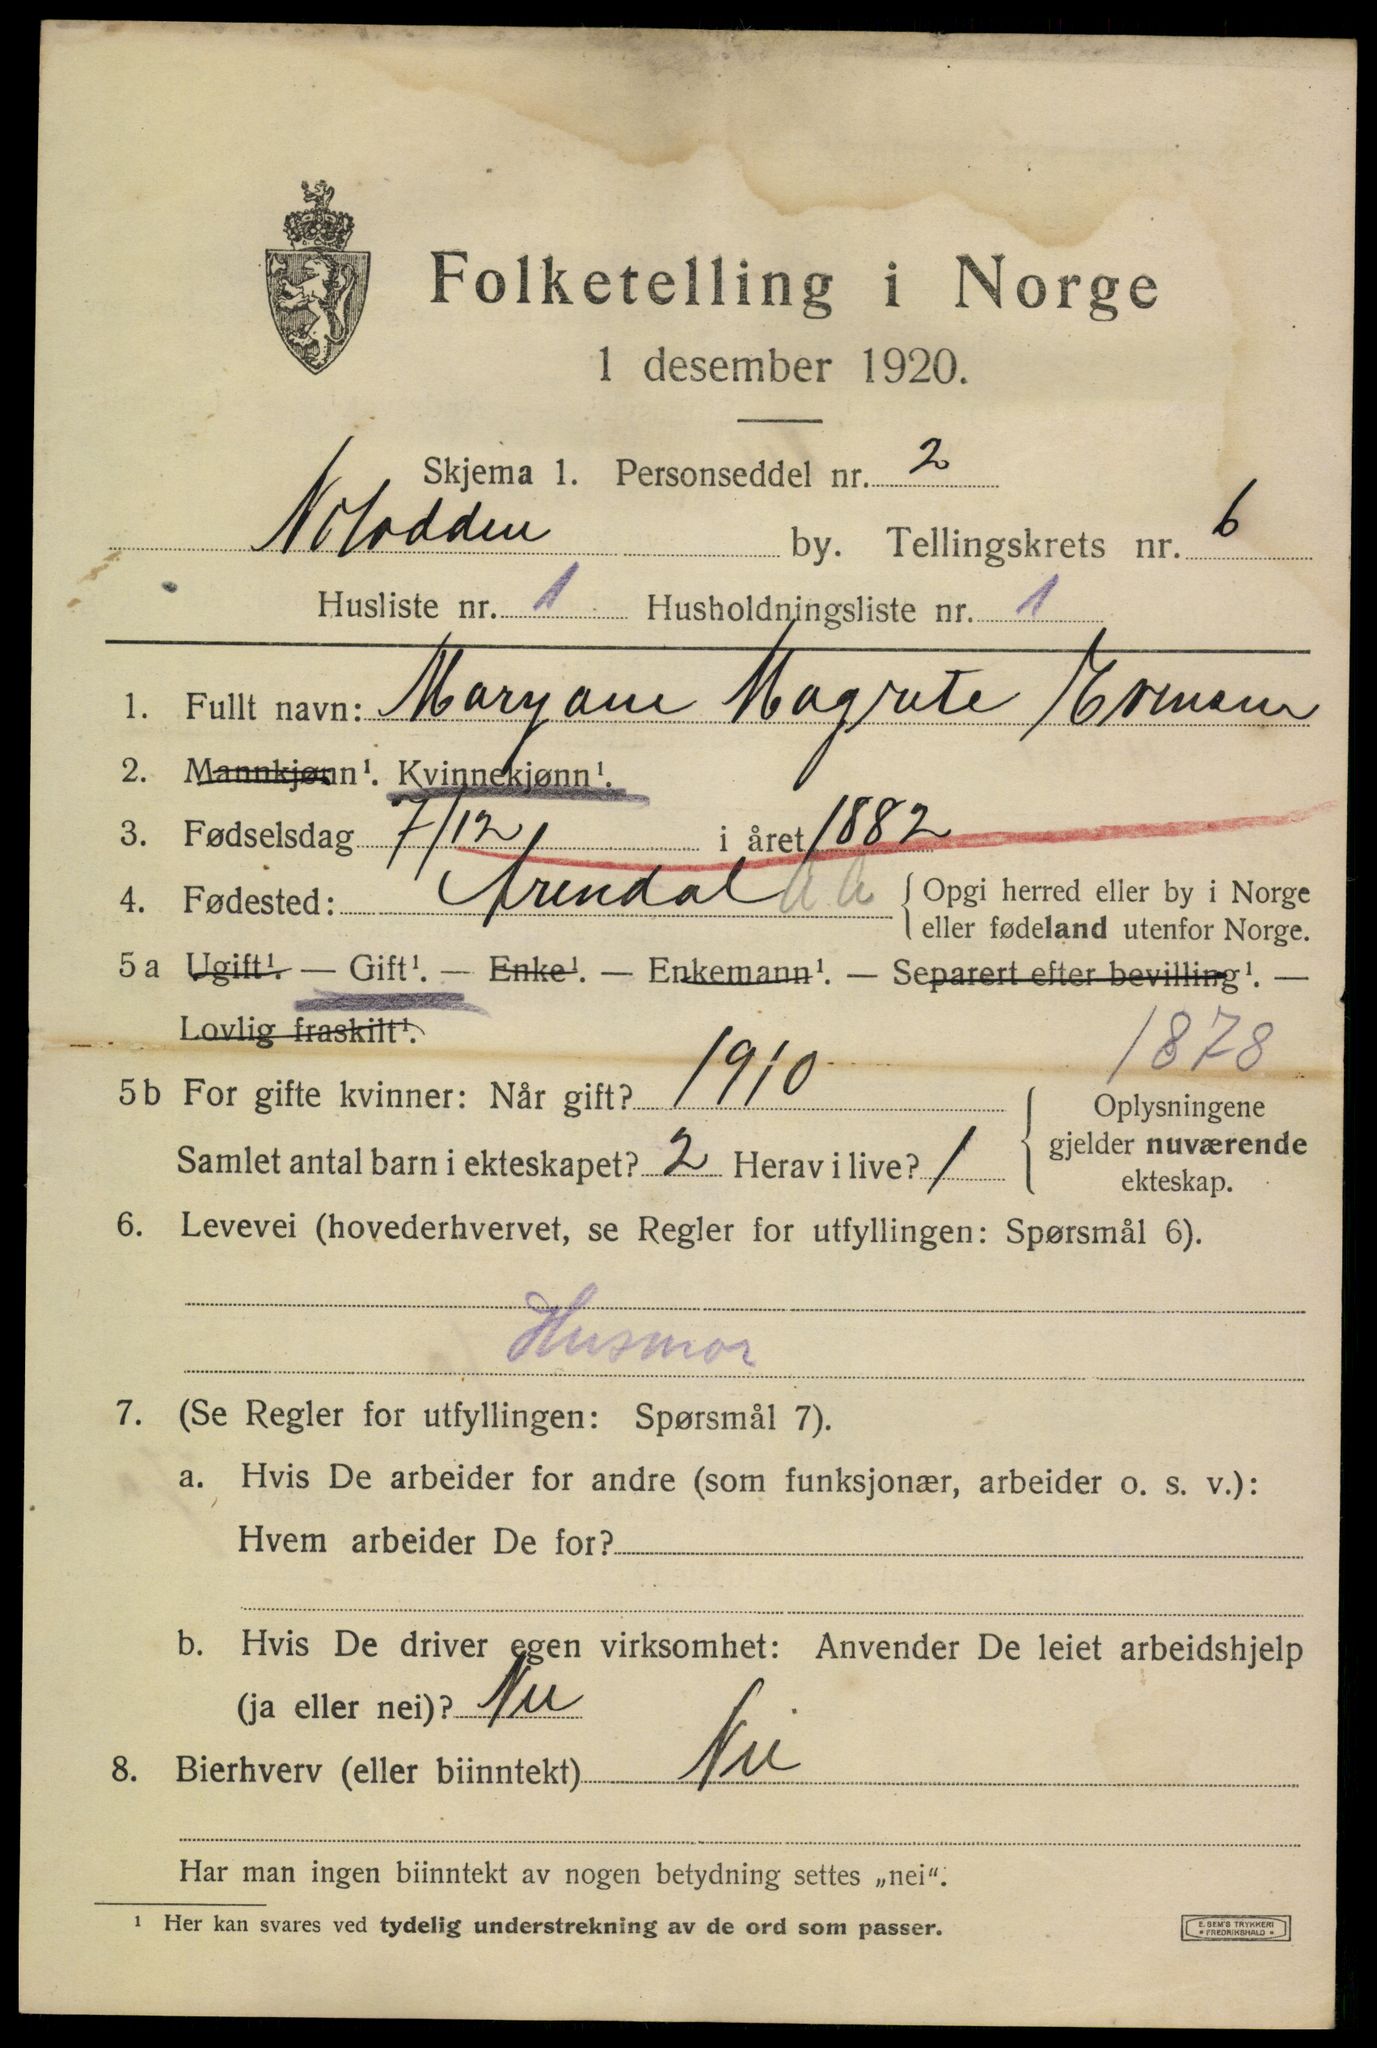 Folketelling i Norge
1 desember 1920.
Skjema 1. Personseddel nr. 2
Notodden by. Tellingskrets nr. 6
Husliste nr. 1 Husholdningsliste nr. 1
1. Fullt navn: Maryane Magrete
2. Mannkjønn¹. Kvinnekjønn¹.
3. Fødselsdag 7/12 i året 1882
4. Fødested: Arendal { Opgi herred eller by i Norge
eller fødeland utenfor Norge.
5 a Ugift¹. — Gift¹. — Enke¹. — Enkemann¹. — Separert efter bevilling¹. —
Lovlig fraskilt¹.
1878
5 b For gifte kvinner: Når gift? 1910
Samlet antal barn i ekteskapet? 2 Herav i live? 1
{ Oplysningene
gjelder nuværende
ekteskap.
6. Levevei (hovederhvervet, se Regler for utfyllingen: Spørsmål 6).
Husmor
7. (Se Regler for utfyllingen: Spørsmål 7).
a. Hvis De arbeider for andre (som funksjonær, arbeider o. s. v.):
Hvem arbeider De for?
b. Hvis De driver egen virksomhet: Anvender De leiet arbeidshjelp
(ja eller nei)? Nei
8. Bierhverv (eller biinntekt) Nei
Har man ingen biinntekt av nogen betydning settes „nei“.
¹ Her kan svares ved tydelig understrekning av de ord som passer.
E. SEM'S TRYKKERI
* FREDRIKSHALD *